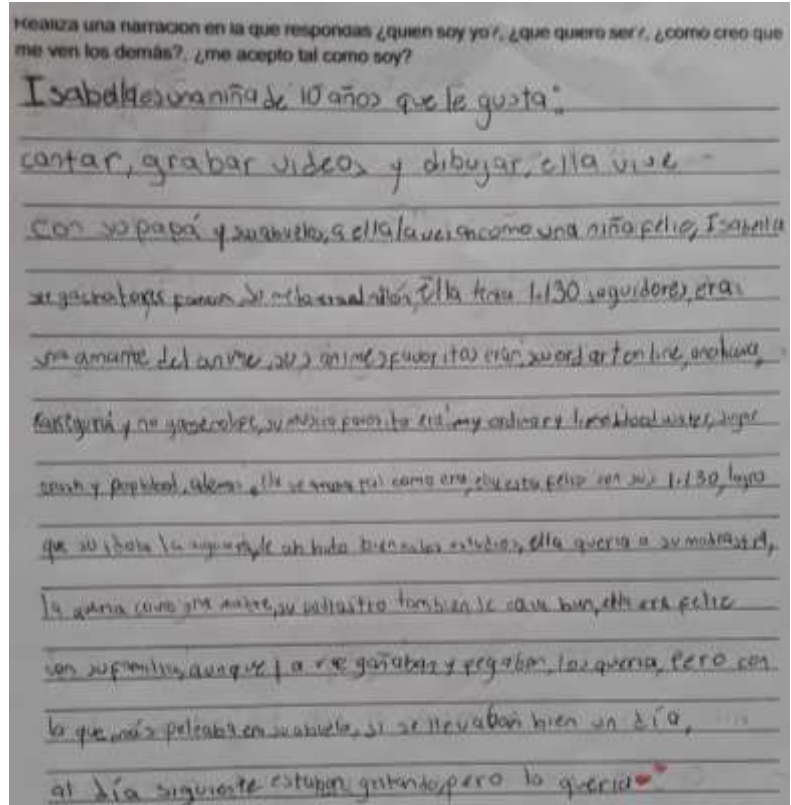 Realiza una narración en la que respondas ¿quien soy yo?, ¿que quiero ser?, ¿como creo que
me ven los demás?, ¿me acepto tal como soy?
Isabella es una niña de 10 años que le gusta:
cantar, grabar videos y dibujar, ella vive
con su papá y su abuela, a ella la veian como una niña feliz, Isabella
ella tenia 1.130 seguidores, era
una amante del anime, sus animes favoritos eran, sword art online,
y no game no life, su musica favorita era my ordinary life, blood water,
y además ella se amaba tal como era, ella esta feliz con sus 1.130, logro
que su la ella queria a su madrastra,
la queria como una madre, su padrastro tambien le caia bien, ella era feliz
con su familia, aunque la regañaban y pegaban, los queria, pero con
la que más peleaba era su abuela, si se llevaban bien un día,
al día siguiente estaban gritando, pero la queria